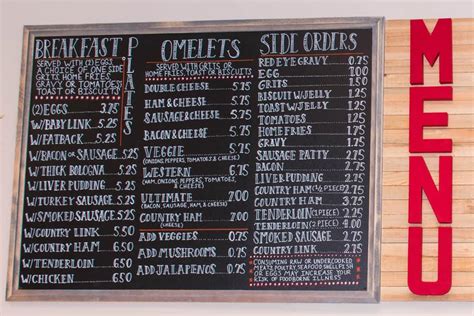 BREAKFAST
PLATES
SERVED WITH (2) EGGS
A CHOICE OF ONE SIDE
GRITS, HOME FRIES,
GRAVY OR TOMATOES
TOAST OR BISCUIT
(2) EGGS 3.75
W/BABY LINK 5.25
W/FATBACK 5.25
W/BACON OR SAUSAGE 5.25
W/THICK BOLOGNA 5.25
W/LIVER PUDDING 5.25
W/TURKEY SAUSAGE 5.25
W/SMOKED SAUSAGE 5.25
W/COUNTRY LINK 5.50
W/COUNTRY HAM 6.50
W/TENDERLOIN 6.50
W/CHICKEN 6.50
OMELETS
SERVED WITH GRITS OR
HOME FRIES TOAST OR BISCUITS
DOUBLE CHEESE 5.25
HAM & CHEESE 5.75
SAUSAGE & CHEESE 5.75
BACON & CHEESE 5.75
VEGGIE 5.75
(ONIONS, PEPPERS, TOMATOES, & CHEESE)
WESTERN 6.75
(HAM, ONIONS, PEPPERS, TOMATOES, & CHEESE)
ULTIMATE 7.00
(BACON, SAUSAGE, HAM & CHEESE)
COUNTRY HAM 7.00
(CHEESE)
ADD VEGGIES 0.75
ADD MUSHROOMS 0.75
ADD JALAPENOS 0.75
SIDE ORDERS
RED EYE GRAVY .75
EGG 1.00
GRITS 1.50
BISCUIT W/JELLY 1.25
TOAST W/JELLY 1.25
TOMATOES 1.25
HOME FRIES 1.75
GRAVY 1.75
SAUSAGE PATTY 1.75
BACON 2.25
LIVER PUDDING 2.25
COUNTRY HAM (1/2 PIECE) 2.25
COUNTRY HAM 3.75
TENDERLOIN (1 PIECE) 2.25
TENDERLOIN (2 PIECE) 3.75
SMOKED SAUSAGE 2.25
COUNTRY LINK 2.75
CONSUMING RAW OR UNDERCOOKED
MEATS, POULTRY, SEAFOOD SHELLFISH
OR EGGS MAY INCREASE YOUR
RISK OF FOODBORNE ILLNESS
MENU